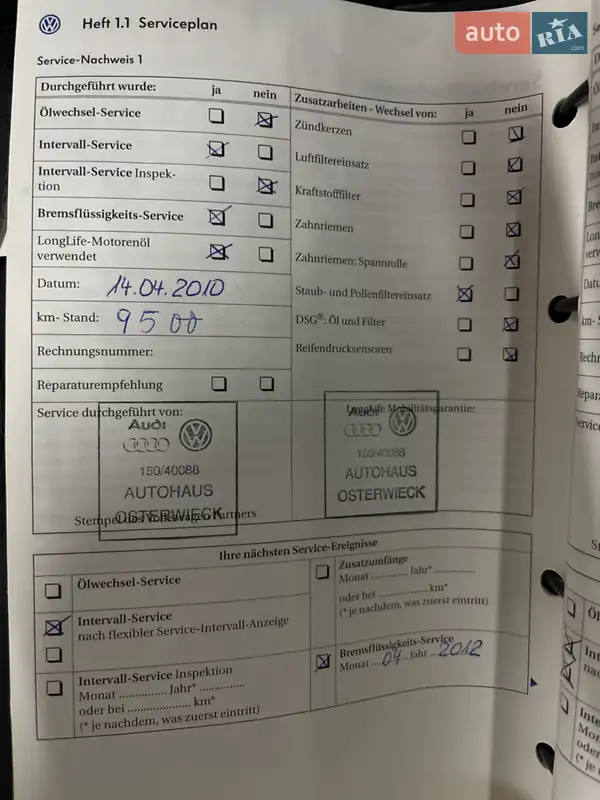 Heft 1.1 Serviceplan
auto RIA .com
Service-Nachweis 1
Durchgeführt wurde: ja nein
Ölwechsel-Service
Intervall-Service
Intervall-Service Inspek-
tion
Bremsflüssigkeits-Service
LongLife-Motorenöl
verwendet
Datum: 14.04.2010
km- Stand: 9500
Rechnungsnummer:
Reparaturempfehlung
Zusatzarbeiten - Wechsel von: ja nein
Zündkerzen
Luftfiltereinsatz
Kraftstofffilter
Zahnriemen
Zahnriemen: Spannrolle
Staub- und Pollenfiltereinsatz
DSG®: Öl und Filter
Reifendrucksensoren
Service durchgeführt von:
Audi
150/40088
AUTOHAUS
OSTERWIECK
Stempel des Volkswagen Partners
LongLife Mobilitätsgarantie:
Audi
150/40088
AUTOHAUS
OSTERWIECK
Ihre nächsten Service-Ereignisse
Ölwechsel-Service
Intervall-Service
nach flexibler Service-Intervall-Anzeige
Intervall-Service Inspektion
Monat ............... Jahr* ...............
oder bei ..................... km*
(* je nachdem, was zuerst eintritt)
Zusatzumfänge
Monat ............ Jahr* .............
oder bei .................... km*
(* je nachdem, was zuerst eintritt)
Bremsflüssigkeits-Service
Monat ...04... Jahr ...2012